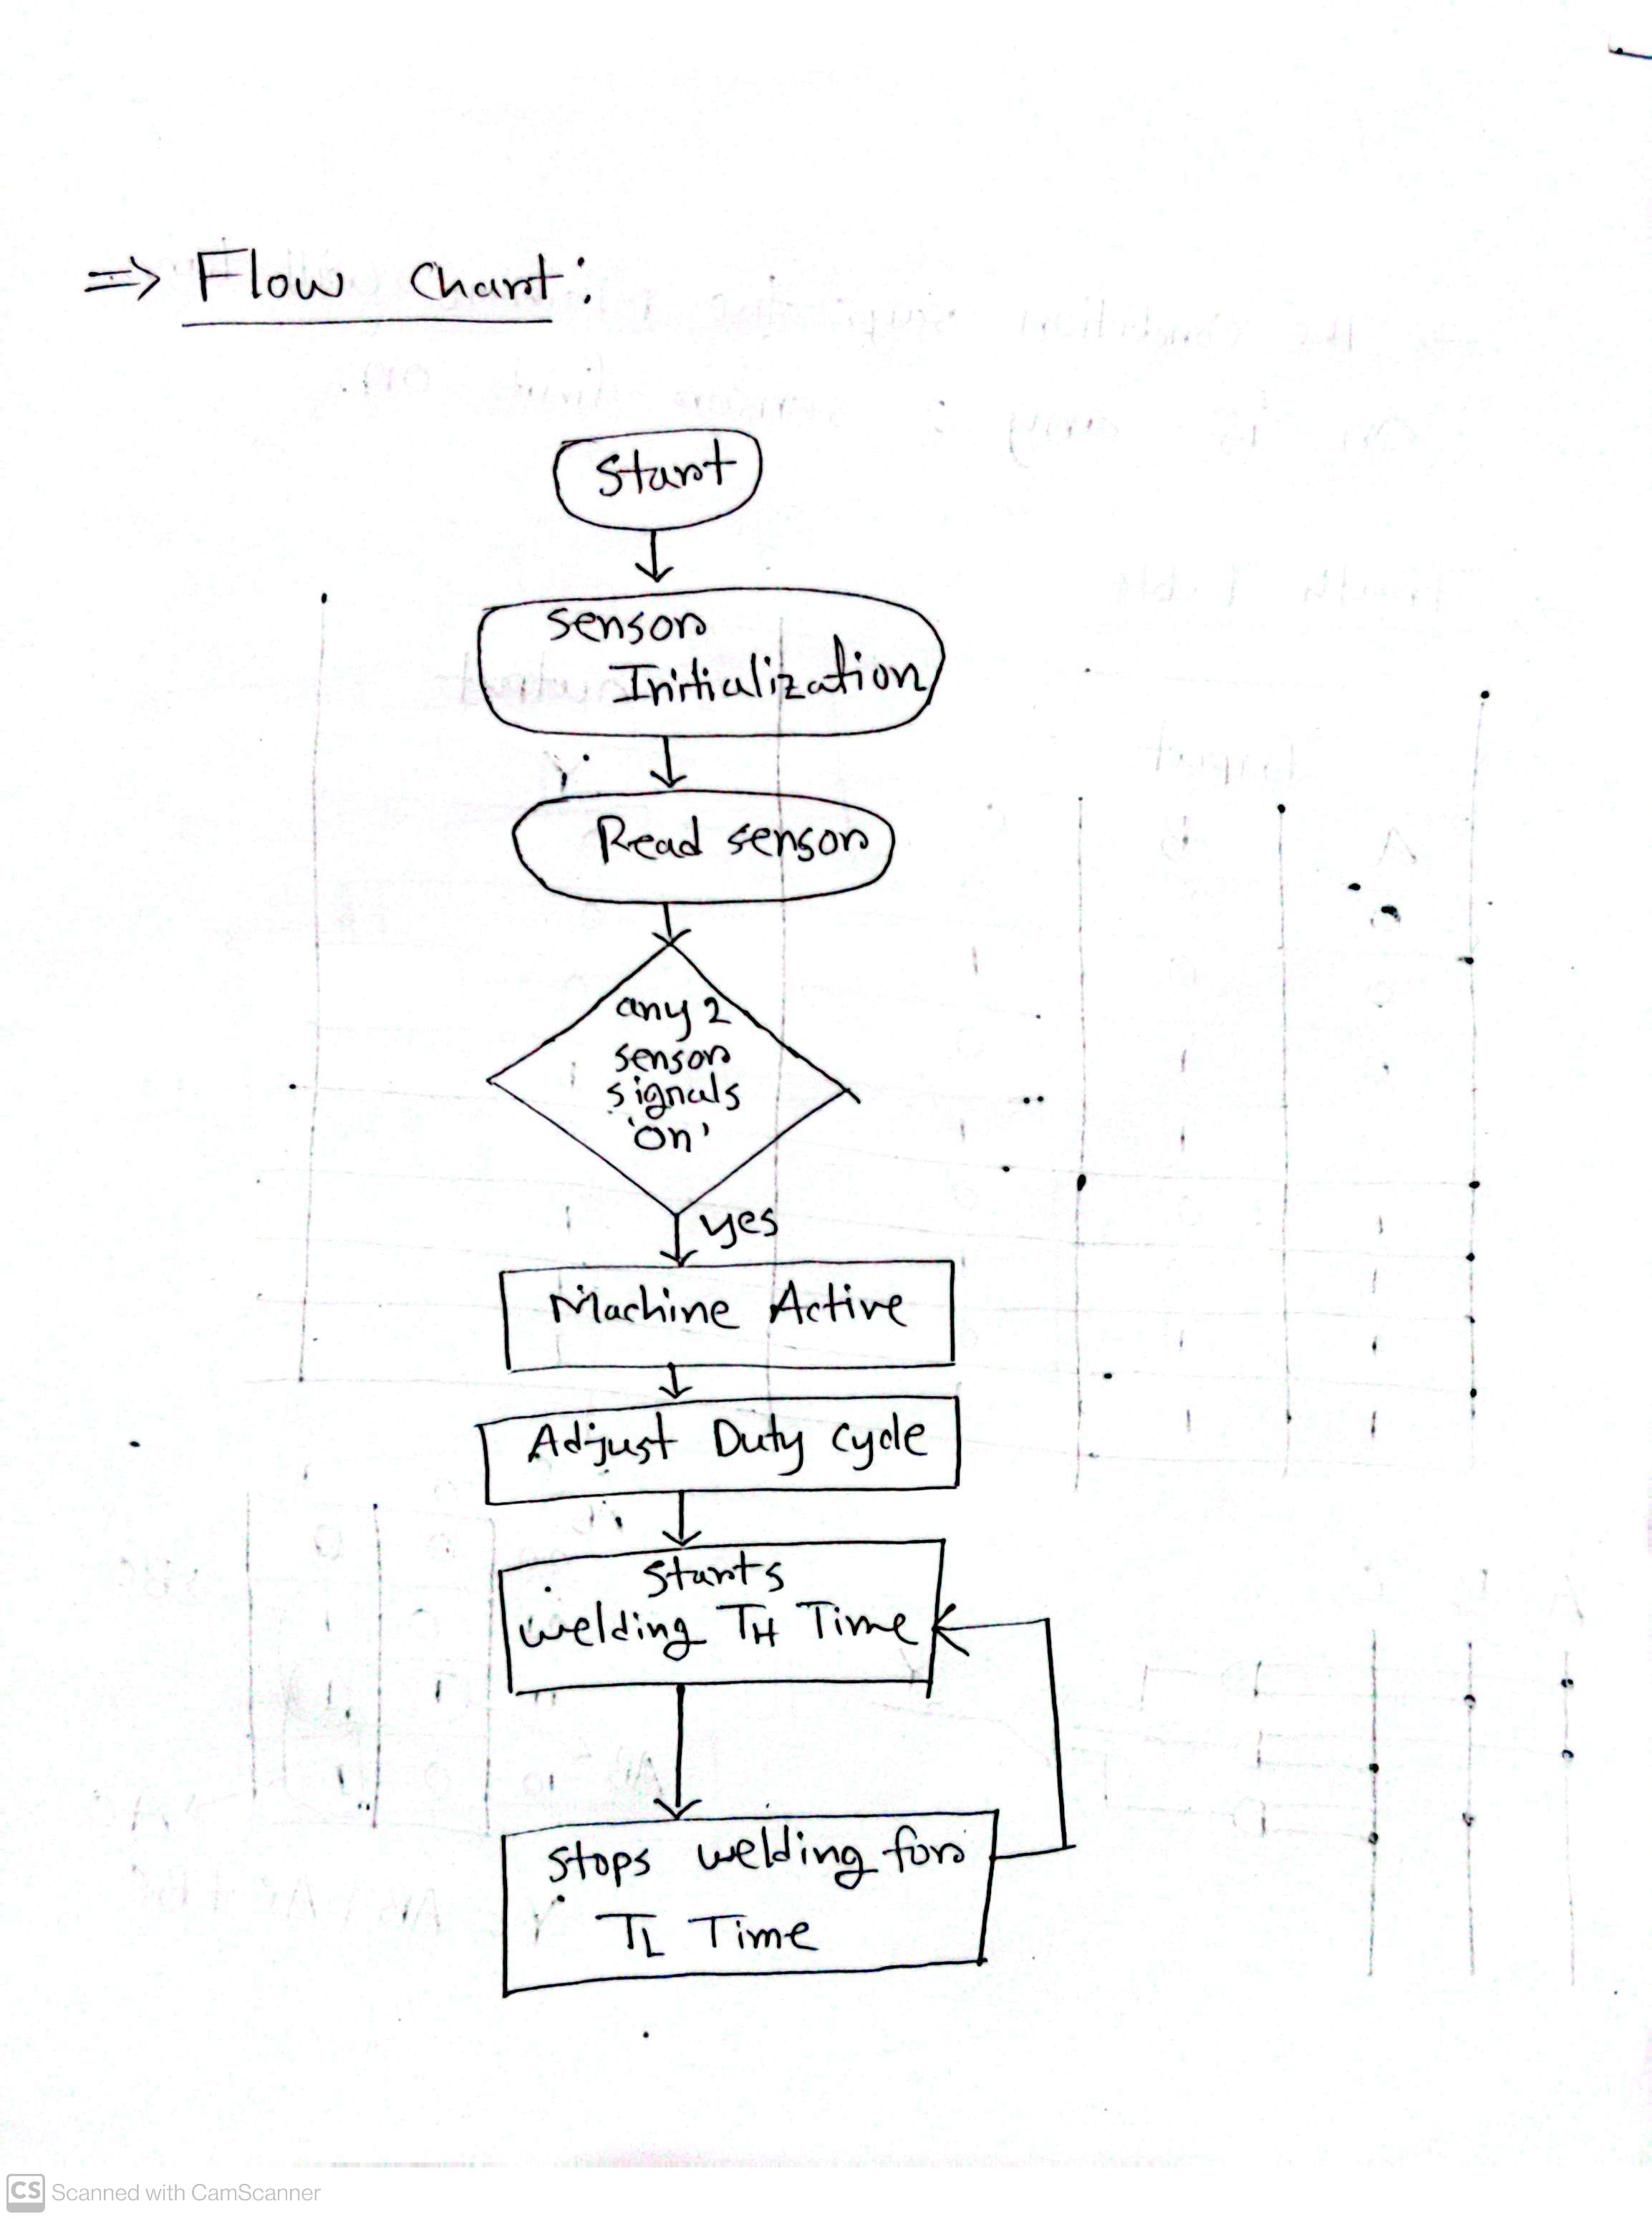 => Flow Chart:
Start
Sensor
Initialization
Read sensor
any 2
sensor
signals
'on'
yes
Machine Active
Adjust Duty cycle
Starts
welding TH Time
Stops welding for
TL Time
CS Scanned with CamScanner